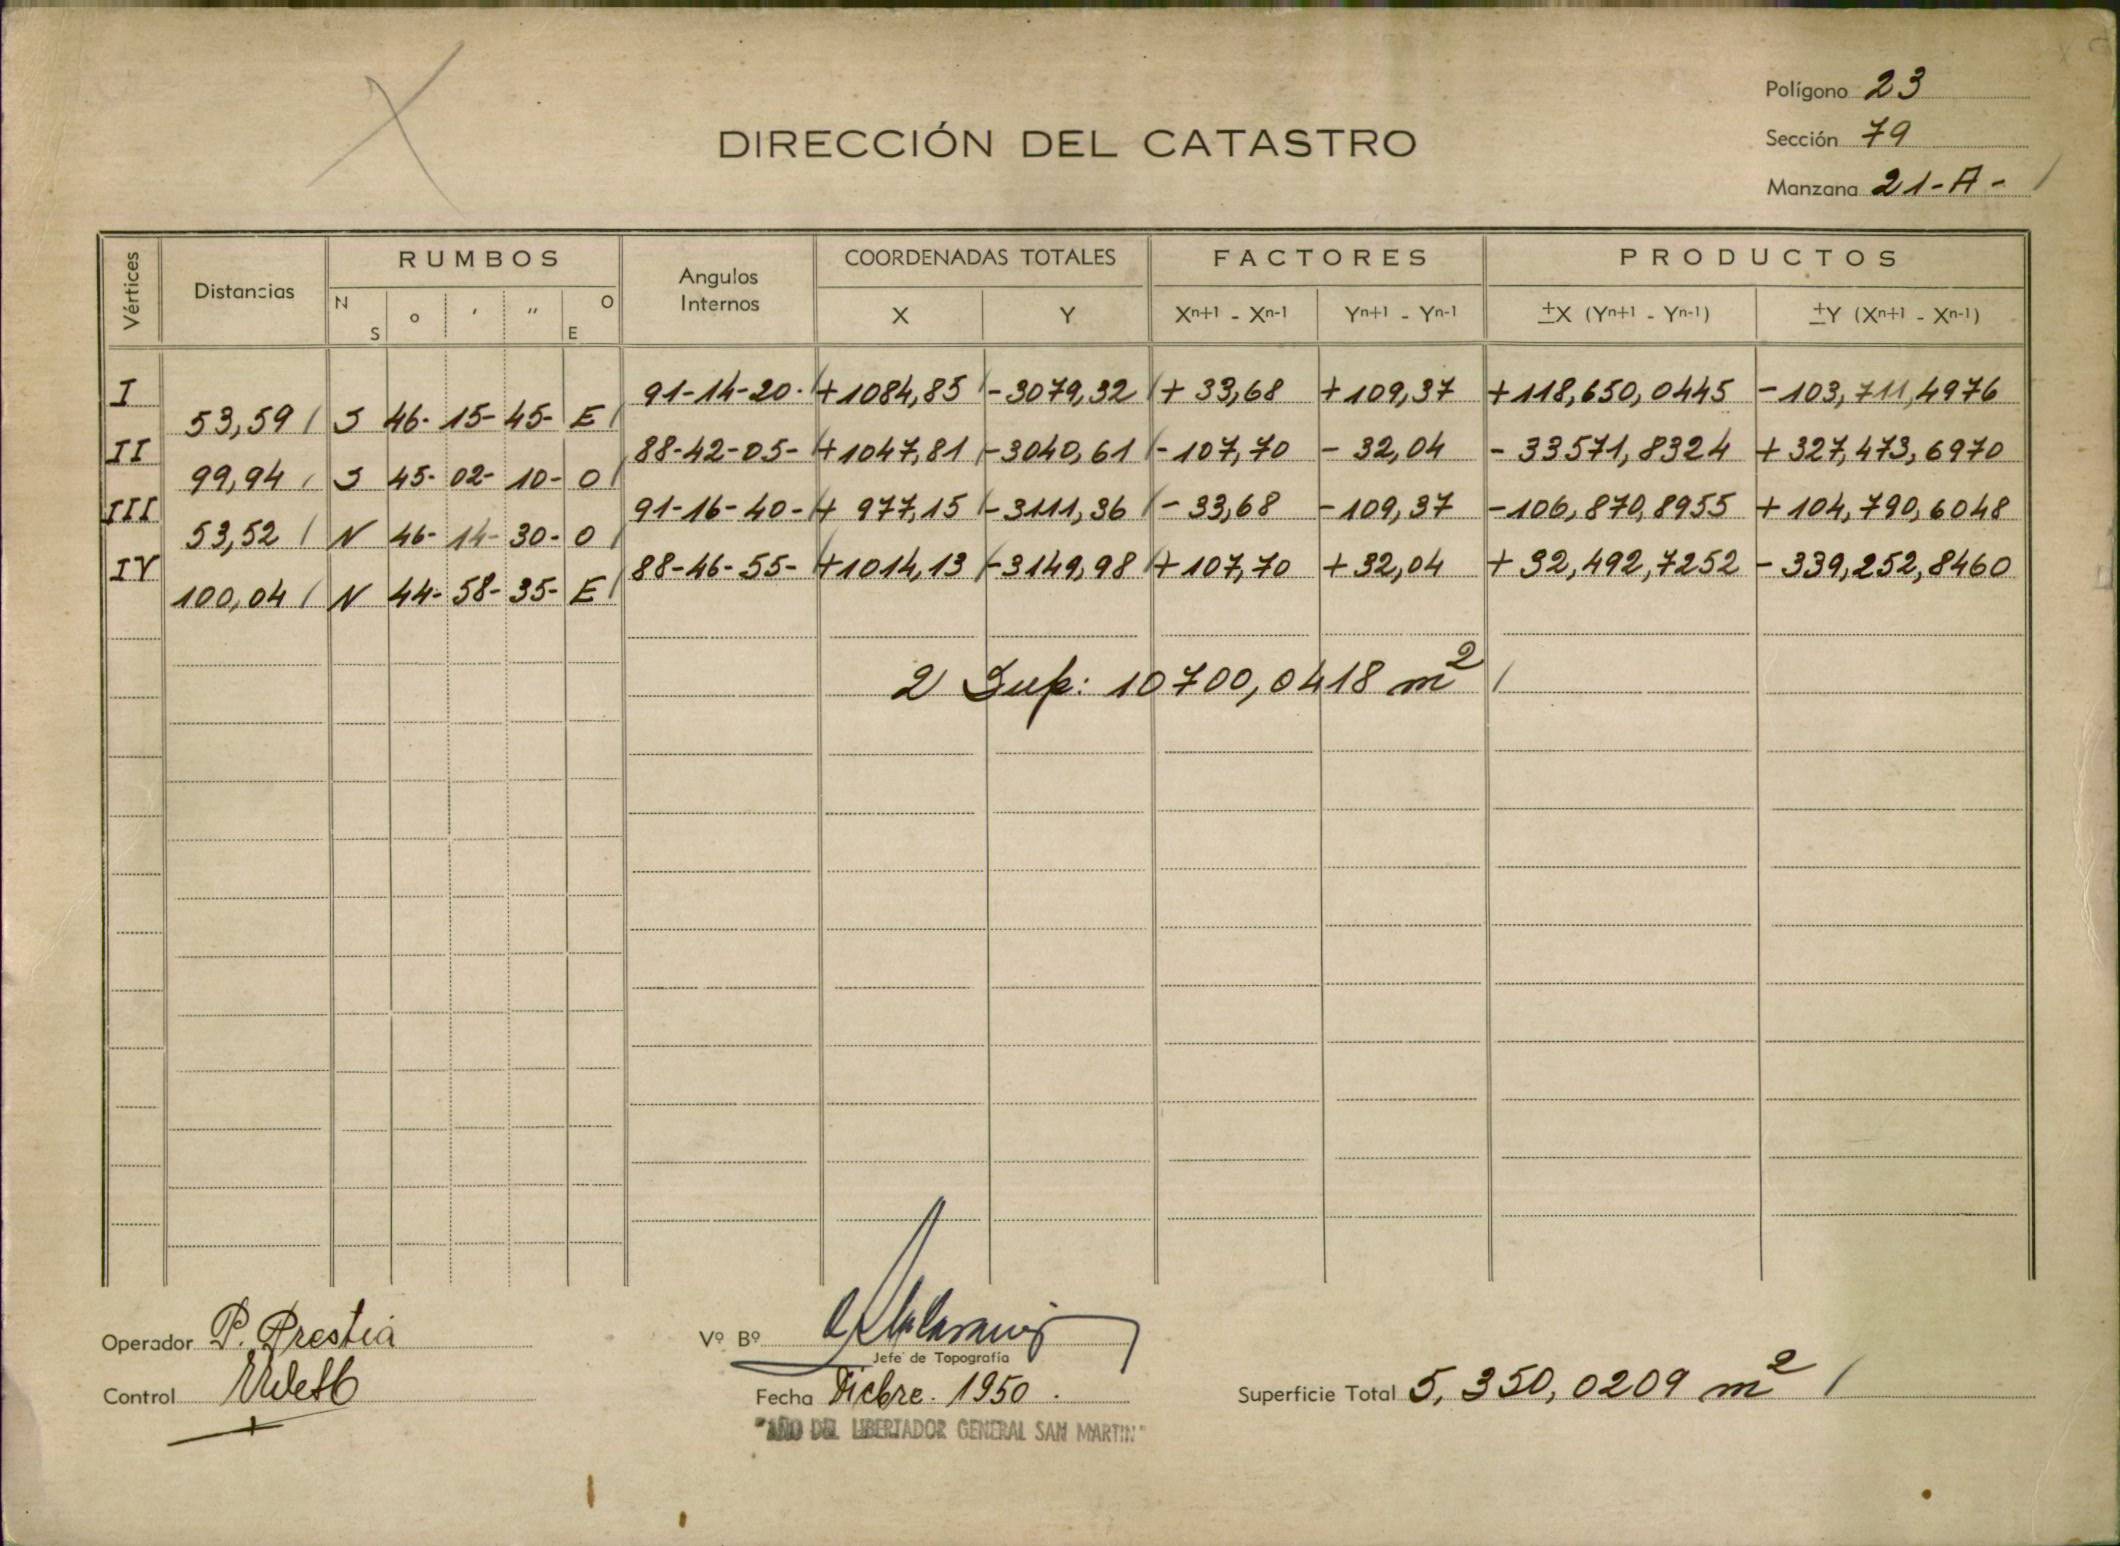 Polígono 23
DIRECCIÓN DEL CATASTRO
Sección 79
Manzana 21-A-
Vértices Distancias RUMBOS Angulos Internos COORDENADAS TOTALES FACTORES PRODUCTOS
N S ° ' " O E X Y Xn+1 - Xn-1 Yn+1 - Yn-1 ±X (Yn+1 - Yn-1) ±Y (Xn+1 - Xn-1)
I 91-14-20- +1084,85 -3079,32 +33,68 +109,37 +118,650,0445 -103,711,4976
53,59 S 46- 15- 45- E
II 88-42-05- +1047,81 -3040,61 -107,70 -32,04 -33571,8324 +327,473,6970
99,94 S 45- 02- 10- O
III 91-16-40- +977,15 -3111,36 -33,68 -109,37 -106,870,8955 +104,790,6048
53,52 N 46- 14- 30- O
IV 88-46-55- +1014,13 -3149,98 +107,70 +32,04 +32,492,7252 -339,252,8460
100,04 N 44- 58- 35- E
2 Sup: 10700,0418 m²
Operador P. Prestia
Vº Bº
Jefe de Topografía
Control
Fecha Dicbre. 1950.
Superficie Total 5,350,0209 m²
"AÑO DEL LIBERTADOR GENERAL SAN MARTIN"